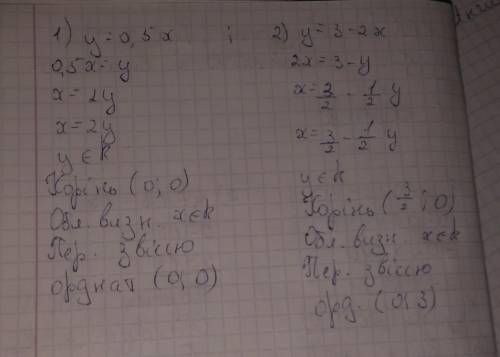 1) y=0,5x ; 2) y=3-2x
0,5x=y
x=2y
x=2y
y є R
Корінь (0; 0)
Обл. визн. x є R
Пер. звіссю
орднат (0; 0)
2x=3-y
x=3/2 - 1/2 y
x=3/2 - 1/2 y
y є R
Корінь (3/2; 0)
Обл. визн. x є R
Пер. звіссю
орд. (0; 3)